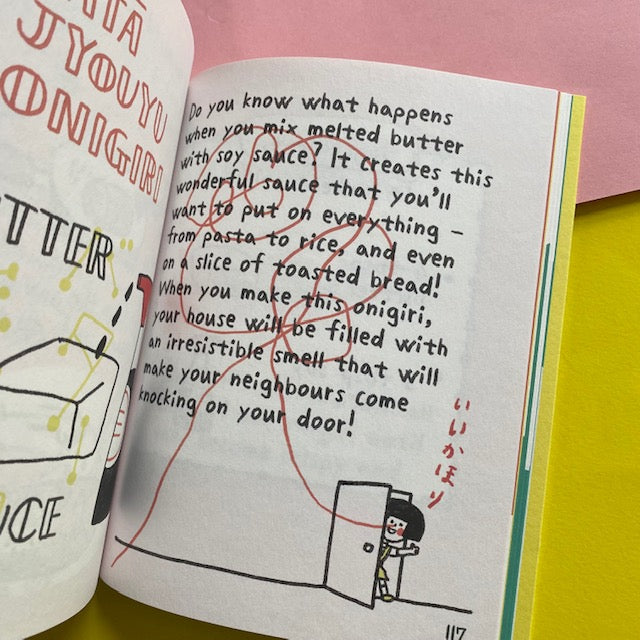 JYOUYU
ONIGIRI
Do you know what happens
when you mix melted butter
with soy sauce? It creates this
wonderful sauce that you'll
want to put on everything –
from pasta to rice, and even
on a slice of toasted bread!
When you make this onigiri,
your house will be filled with
an irresistible smell that will
make your neighbours come
knocking on your door!
いいかほり
117